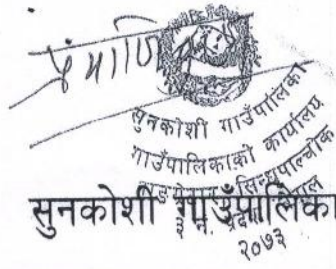 प्रमाणित
सुनकोशी गाउँपालिका
गाउँपालिकाको कार्यालय
सिन्धुपाल्चोक
३ नं. प्रदेश नेपाल
२०७३
सुनकोशी गाउँपालिका